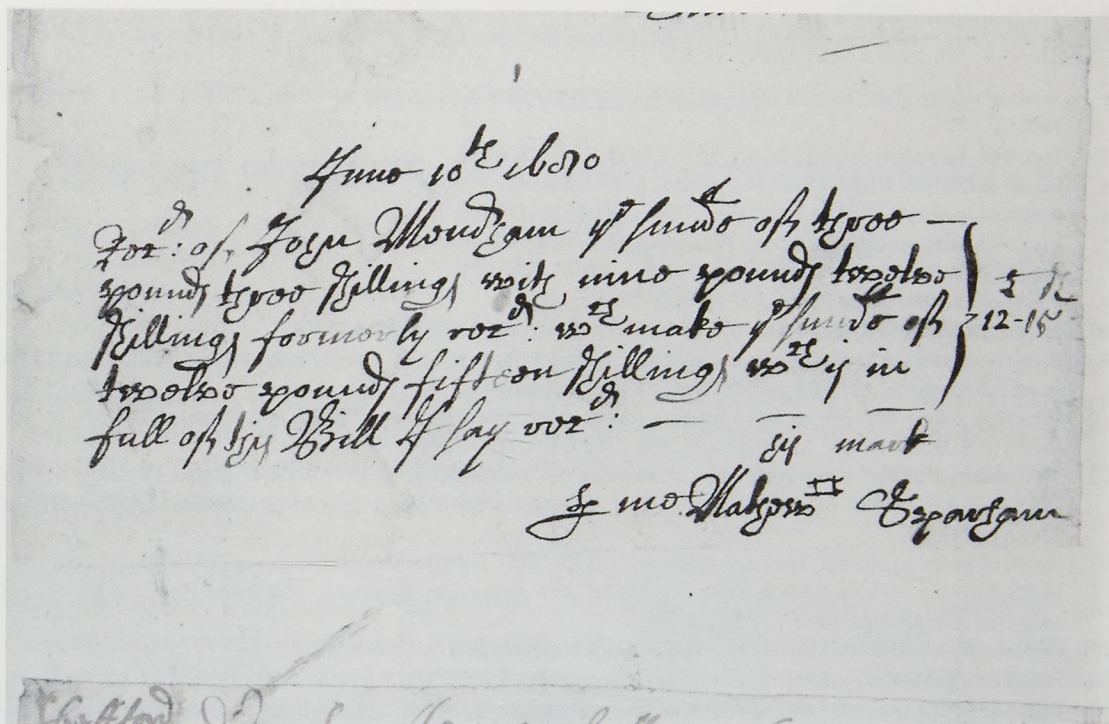 June 10th 1680
Recd: of John Mendham ye summe of three —
pounds three shillings with nine pounds twelve
shillings formerly recd: wch make ye summe of
£ s
12-15
twelve pounds fifteen shillings wch is in
full of this Bill I say recd: —
his mark
P me Mathew Sparham